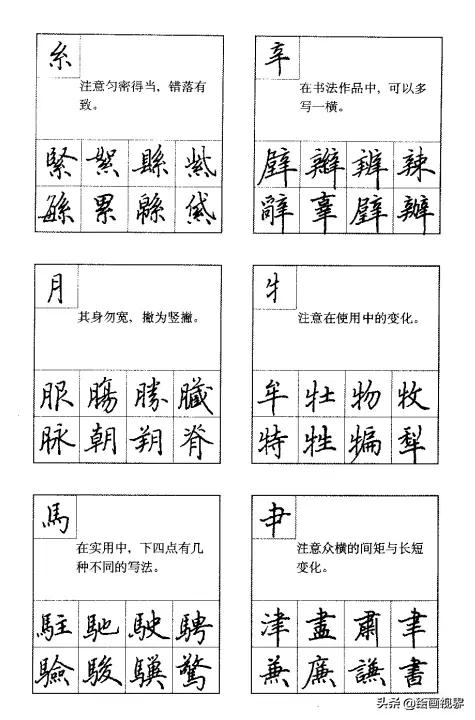 糸
注意匀密得当，错落有
致。
緊 絮 縣 紫
緐 累 緜
辛
在书法作品中，可以多
写一横。
辟 辨 辣
辭 辜 辦
月
其身勿宽，撇为竖撇。
服 腸 勝 臟
脉 朝 朔 脊
牜
注意在使用中的变化。
牟 牡 物 牧
特 牲 犏 犁
馬
在实用中，下四点有几
种不同的写法。
駐 馳 駛 騁
驗 駿 驚
肀
注意众横的间矩与长短
变化。
津 盡 肅 聿
兼 廉 謙 書
头条 @绘画视黎